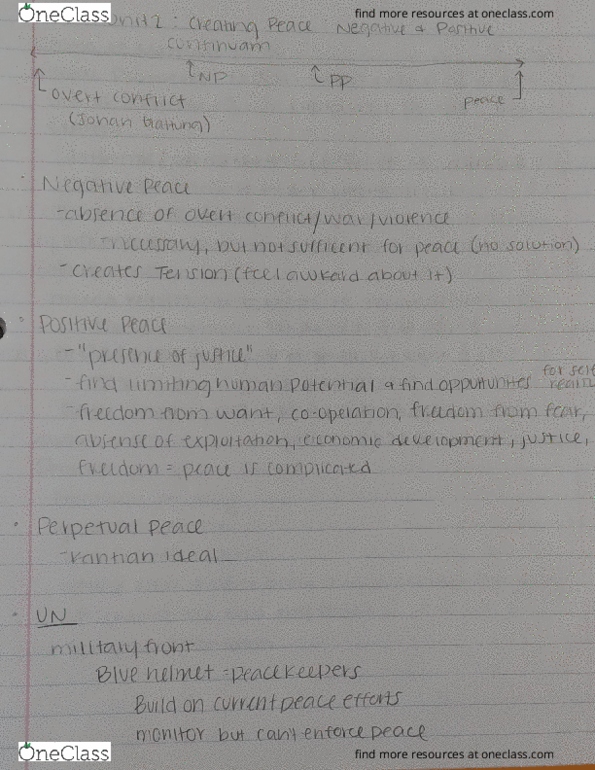 OneClass
find more resources at oneclass.com
Unit 2: Creating Peace: Negative & Positive
continuam
NP
PP
peace
overt conflict
(Johan Galtung)
Negative Peace
-absence of overt conflict/war/violence
-necessary, but not sufficent for peace (no solution)
-creates Tension (feel awkard about it)
Positive Peace
-"presence of justice"
-find limiting human potential & find oppurtunites for self
-freedom from want, co-operation, freedom from fear,
absense of exploitation, economic development, justice,
freedom = peace is complicated
Perpetual peace
-kantian ideal
UN
military front
Blue helmet = peacekeepers
Build on current peace efforts
monitor but can't enforce peace
OneClass
find more resources at oneclass.com